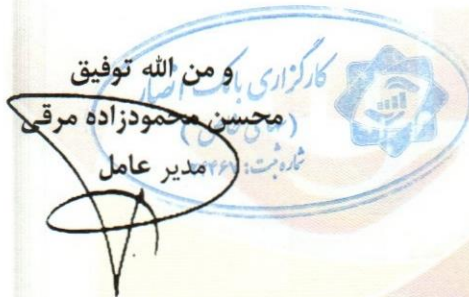 و من الله توفیق
محسن محمودزاده مرقی
مدیر عامل
کارگزاری بانک انصار
(سهامی خاص)
شماره ثبت: